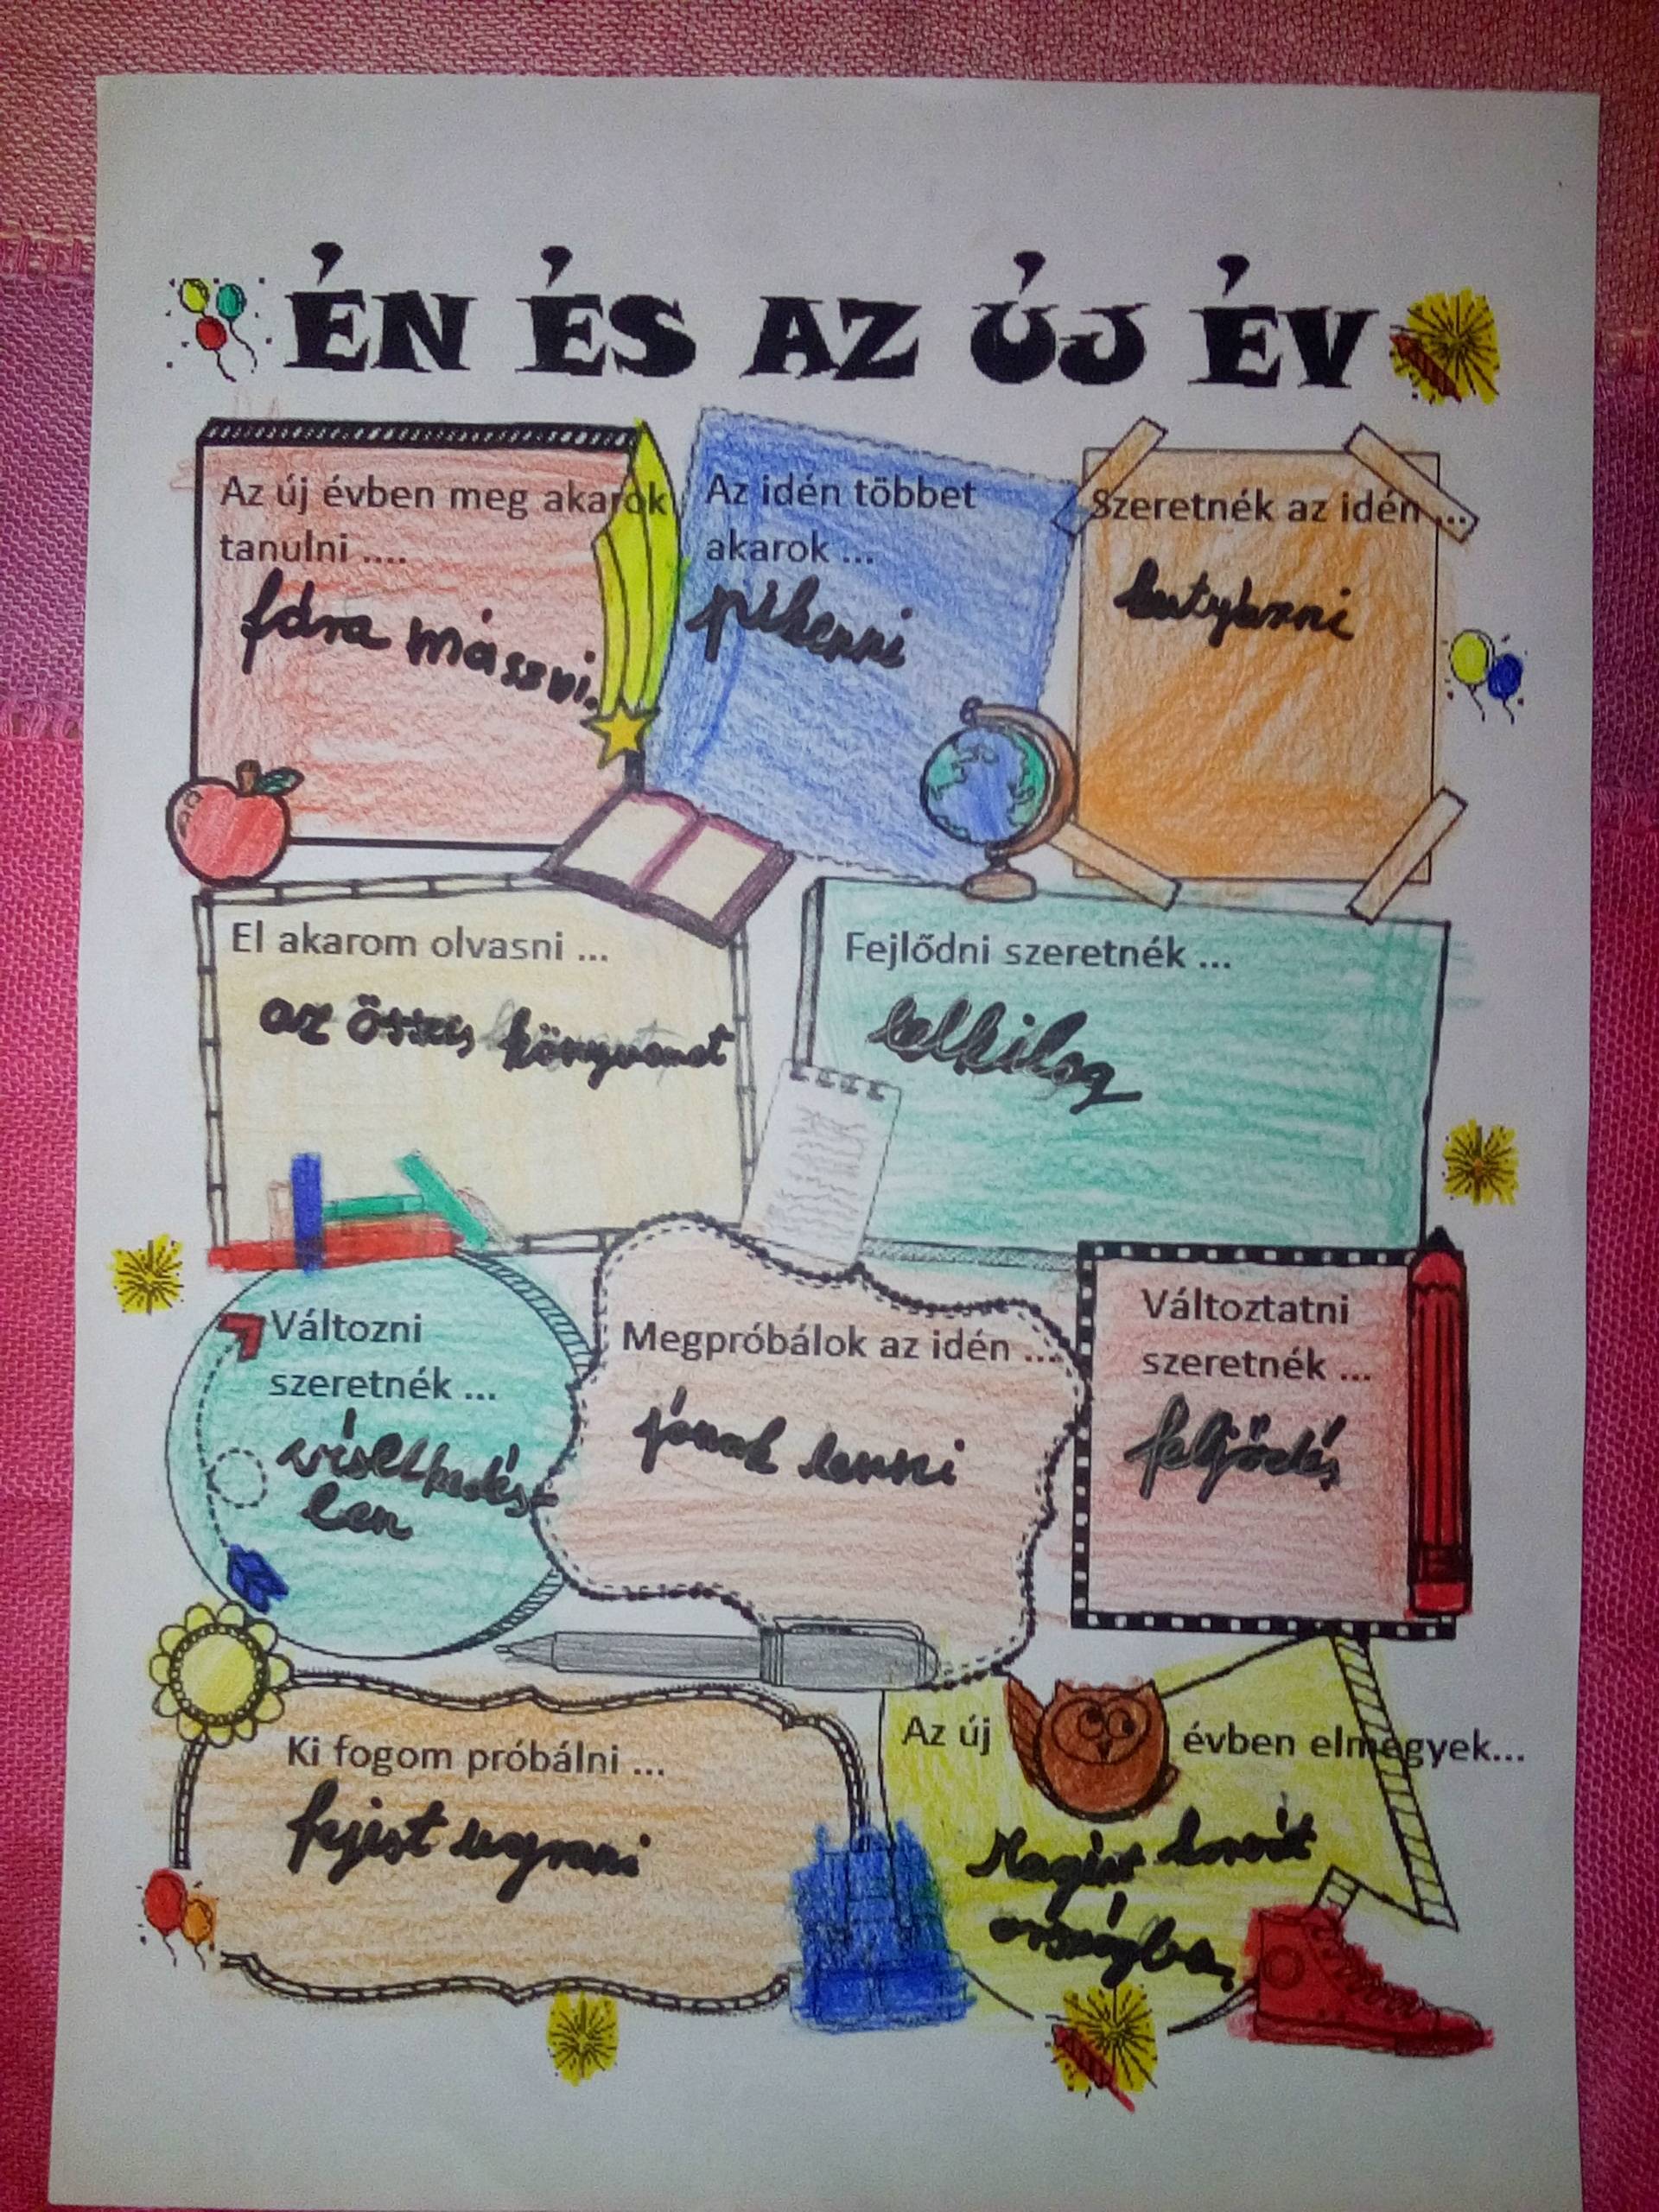 ÉN ÉS AZ ÚJ ÉV
Az új évben meg akarok
tanulni ....
fára mászni.
Az idén többet
akarok ...
pihenni
Szeretnék az idén ...
El akarom olvasni ...
az összes könyvemet
Fejlődni szeretnék ...
lelkileg
Változni
szeretnék ...
viselkedés-
ben
Megpróbálok az idén ...
jónak lenni
Változtatni
szeretnék ...
Ki fogom próbálni ...
fejest ugrani
Az új évben elmegyek...
országba